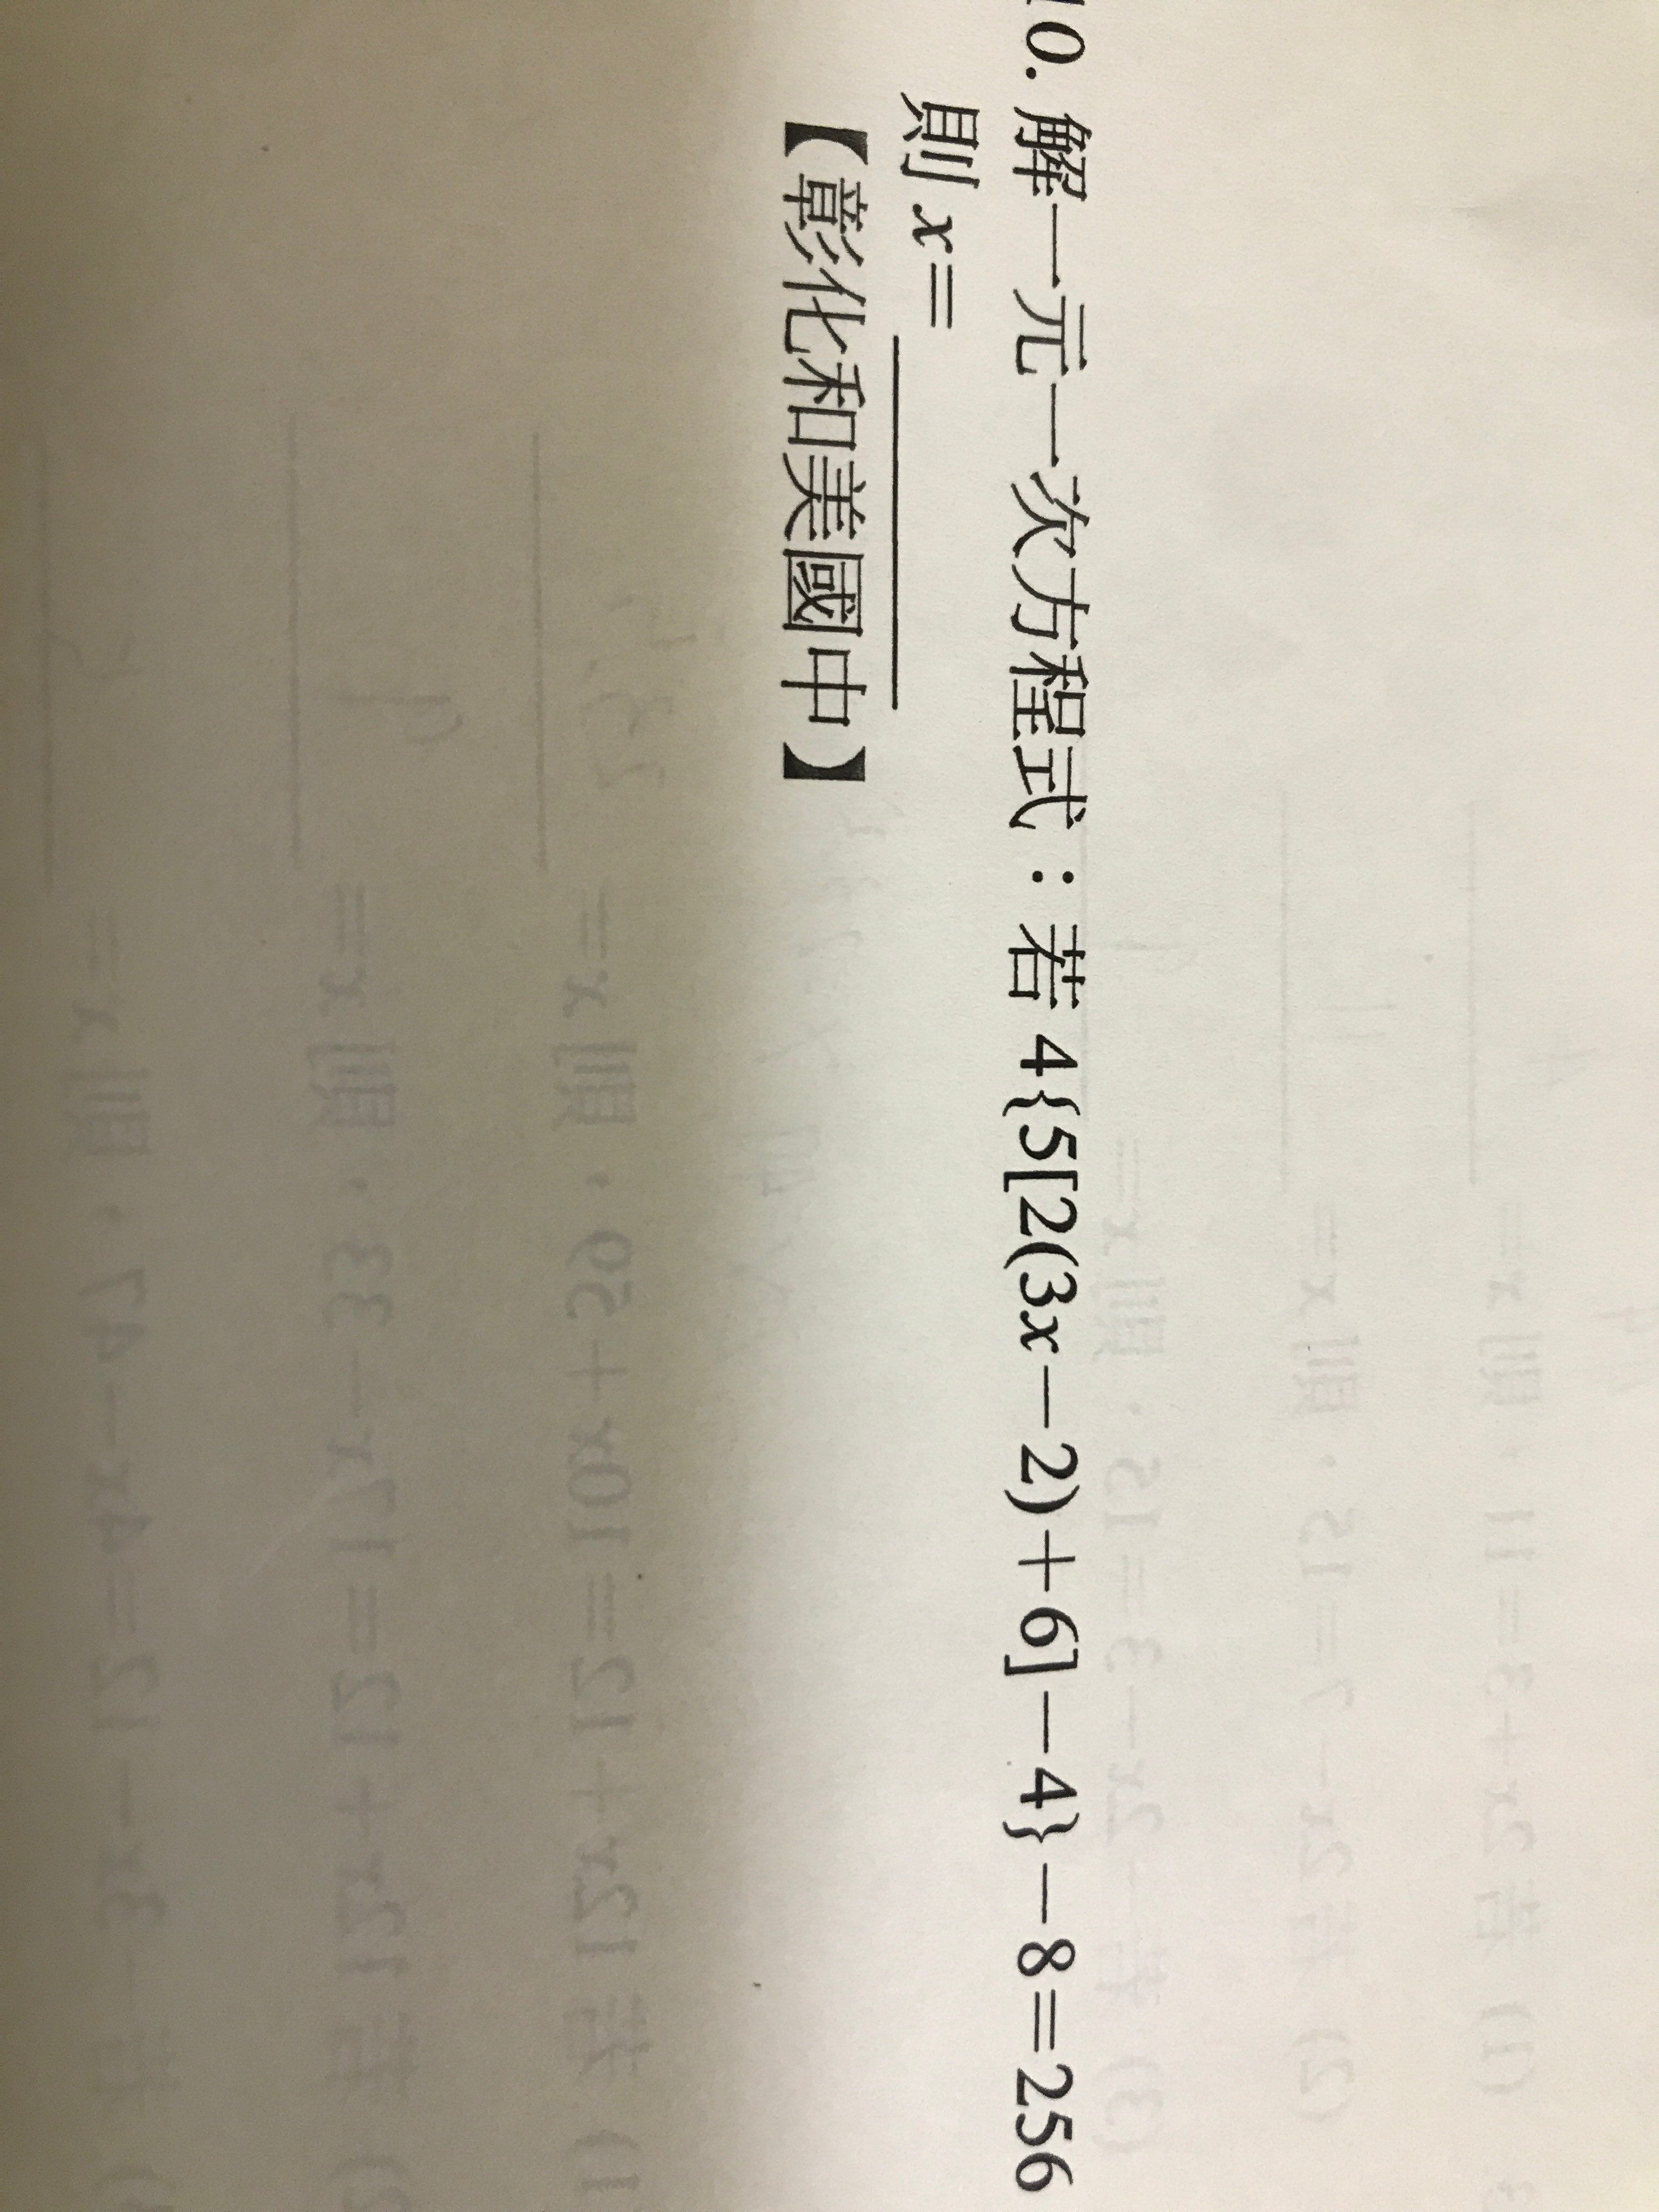 10. 解一元一次方程式：若 4{5[2(3x－2)＋6]－4}－8＝256
則 x＝
【彰化和美國中】